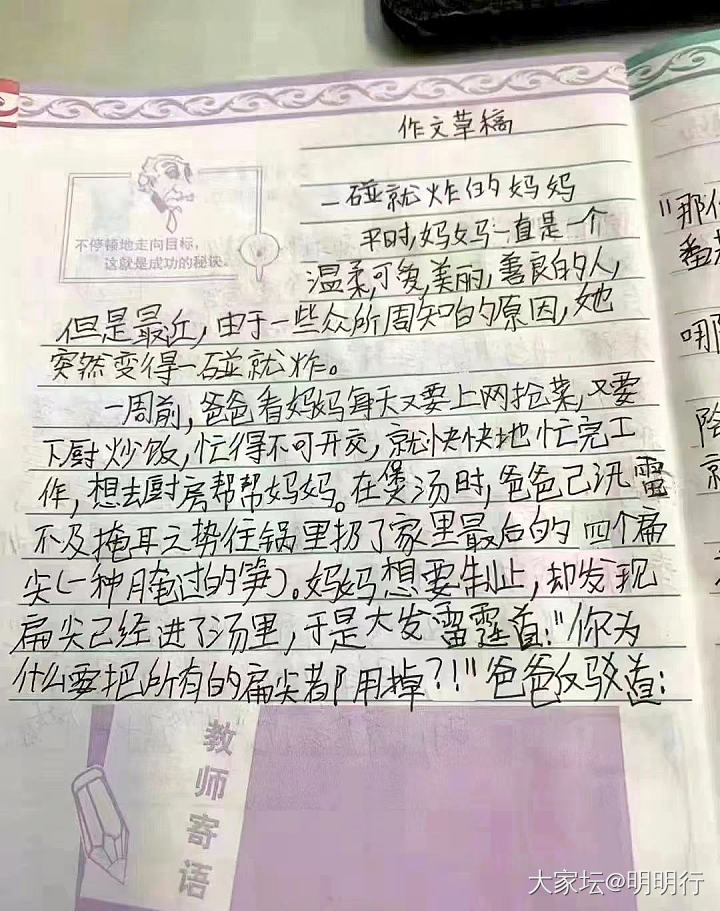 作文草稿
不停顿地走向目标，
这就是成功的秘诀。
一碰就炸的妈妈
平时，妈妈一直是一个
温柔，可爱，美丽，善良的人，
但是最近，由于一些众所周知的原因，她
突然变得一碰就炸。
一周前，爸爸看妈妈每天又要上网抢菜，又要
下厨炒饭，忙得不可开交，就快快地忙完工
作，想去厨房帮帮妈妈。在煲汤时，爸爸已汛雷
不及掩耳之势往锅里扔了家里最后的四个扁
尖（一种腌过的笋）。妈妈想要制止，却发现
扁尖已经进了汤里，于是大发雷霆道：“你为
什么要把所有的扁尖都用掉？！”爸爸反驳道：
“那
咽
教师寄语
大家坛@明明行